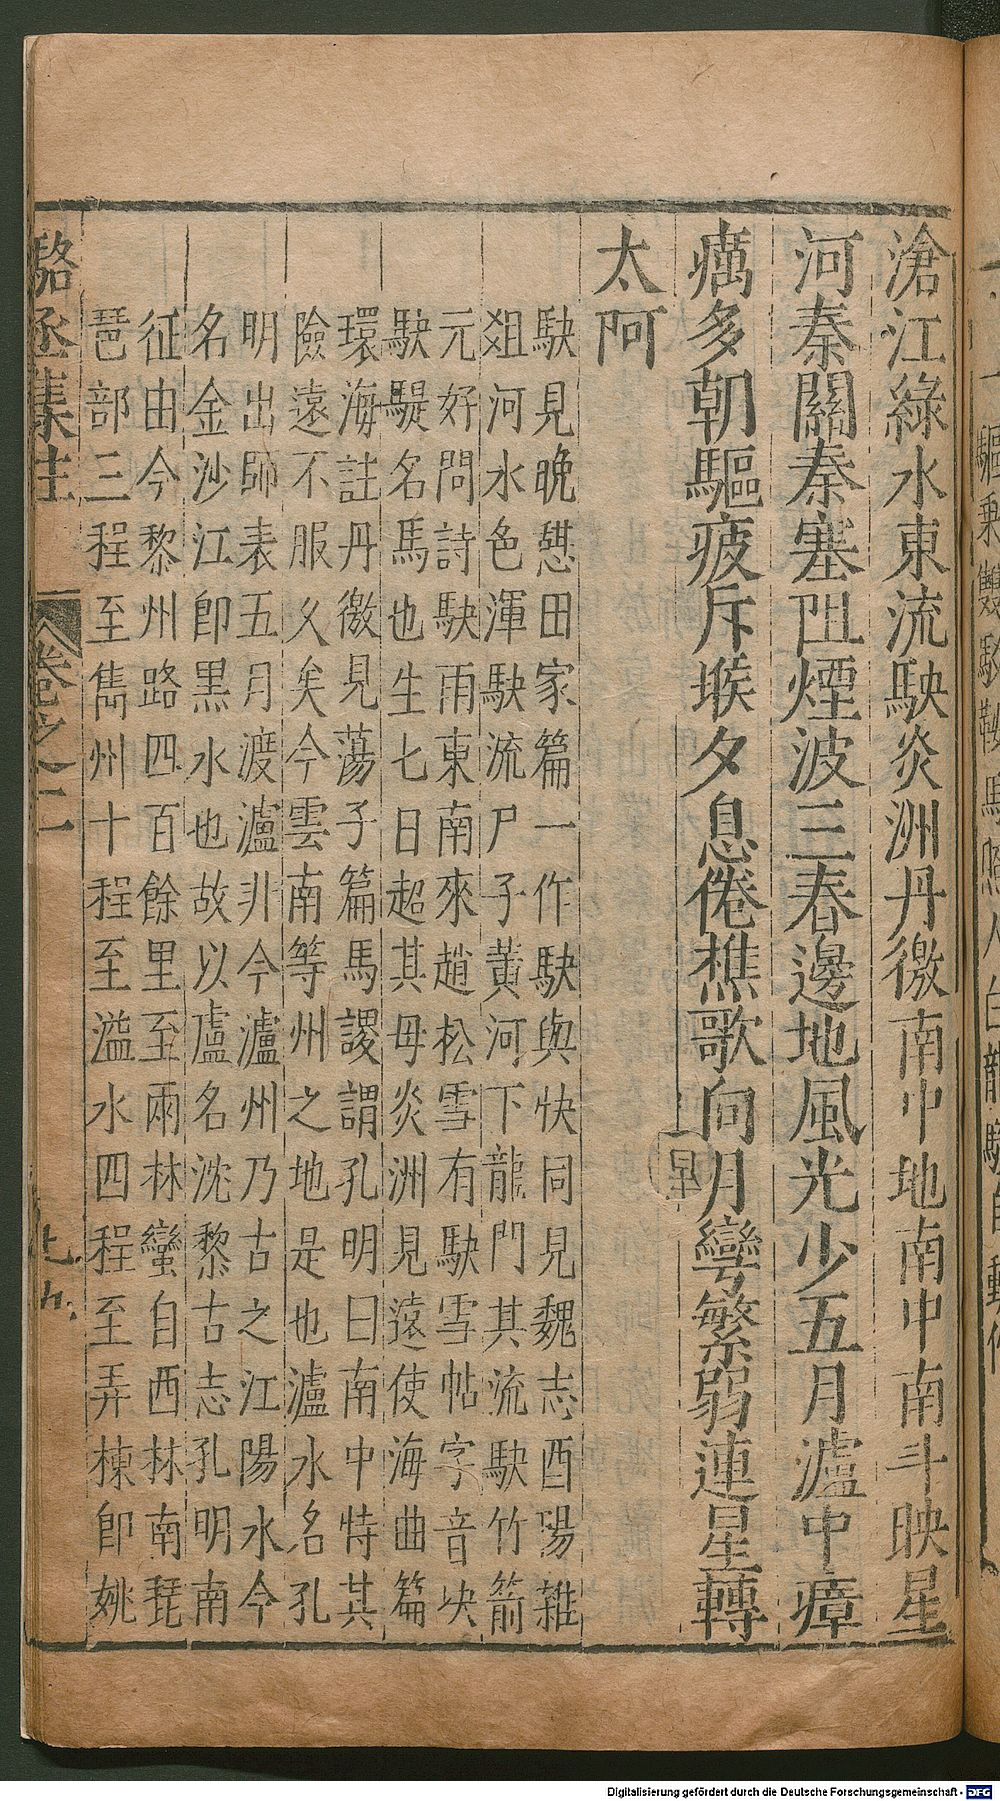 滄江綠水東流駛炎洲丹徼南中地南中南斗映星
河秦關秦塞阻煙波三春邊地風光少五月瀘中瘴
癘多朝驅疲斥堠夕息倦樵歌向月彎繁弱連星轉
太阿
駃見晚憇田家篇一作駃與快同見魏志酉陽雜
俎河水色渾駃流尸子黃河下龍門其流駃竹箭
元好問詩駃雨東南來趙松雪有駃雪帖字音决
駃騠名馬也生七日超其母炎洲見遠使海曲篇
環海註丹徼見蕩子篇馬謖謂孔明曰南中恃其
險遠不服乆矣今雲南等州之地是也瀘水名孔
明出師表五月渡瀘非今瀘州乃古之江陽水今
名金沙江卽黒水也故以盧名沈黎古志孔明南
征由今黎州路四百餘里至兩林蠻自西林南琵
琶部三程至雋州十程至溢水四程至弄棟卽姚
駱丞集註
卷之二
七九
Digitalisierung gefördert durch die Deutsche Forschungsgemeinschaft - DFG